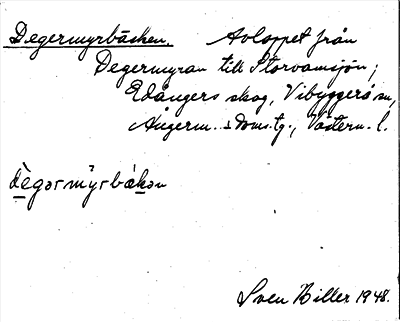 Degermyrbäcken. Avloppet från
Degermyran till Storvamsjön;
Edångers skog, Vibyggerå sn,
Ångerm. s. doms.tg., Västern. l.
dègərmyrbäkən
Sven Hiller 1948.